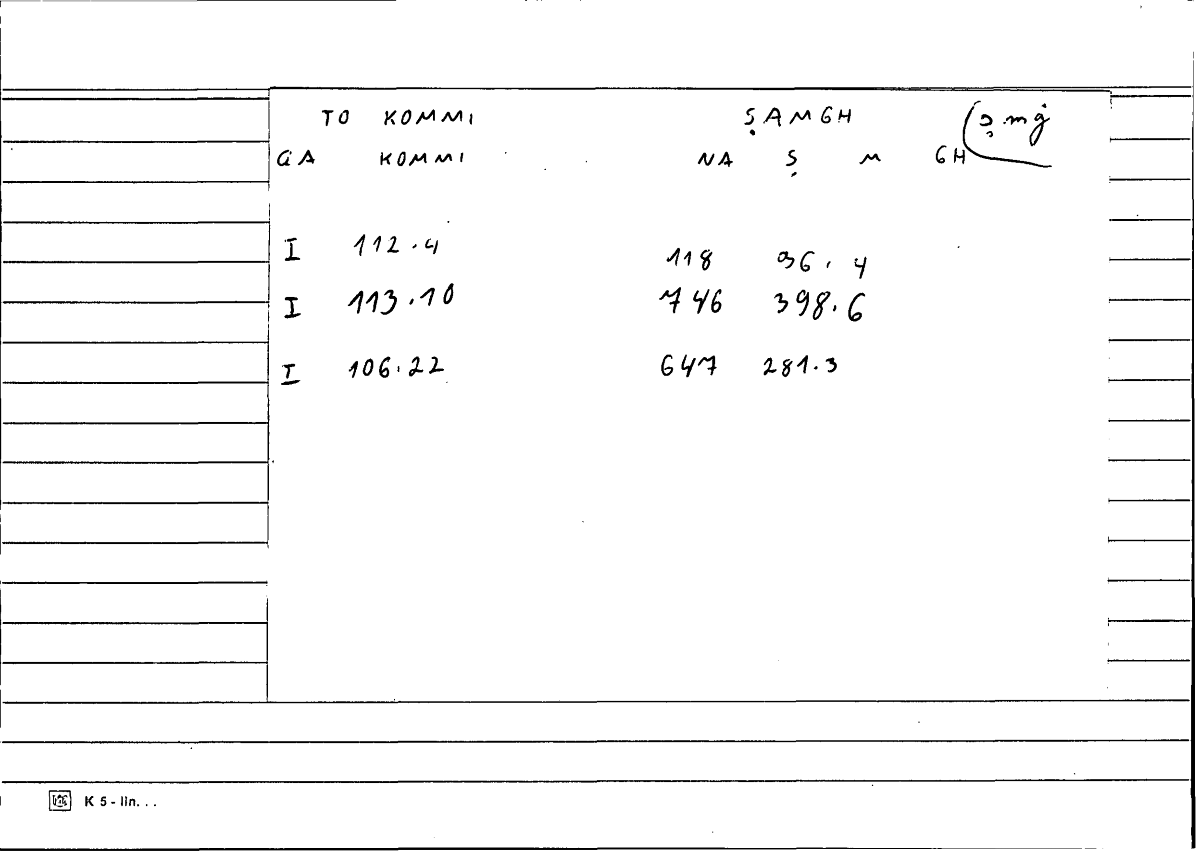 TO KOMMI ṢAMGH ṣ.mġ
GA KOMMI NA Ṣ M GH
I 112.4 118 96.4
I 113.10 746 398.6
I 106.22 647 281.3
K 5 - lin. . .